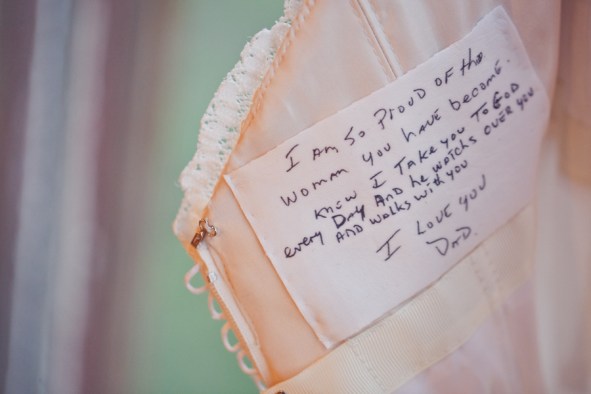 I AM SO PROUD OF the
WOMAN YOU HAVE become.
KNOW I TAKE YOU TO GOD
every DAY AND he wAtchs OVER YOU
AND wALKS with YOU
I LOVE YOU
DAD.